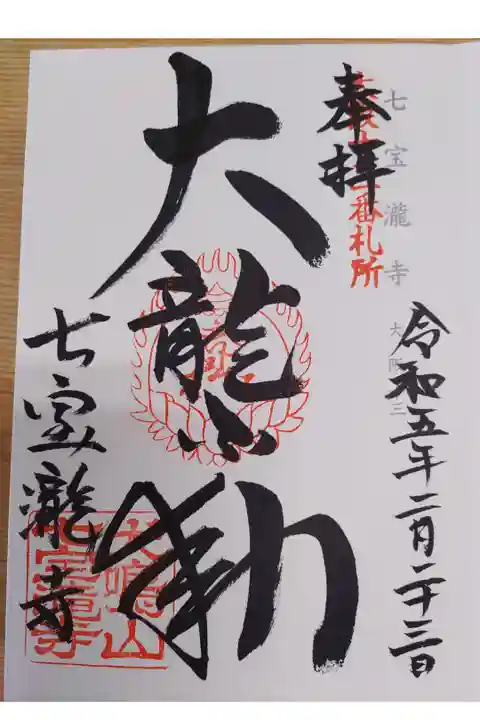 七宝瀧寺
奉拝
番札所
令和五年二月二十三日
大龍不動
七宝瀧寺
犬鳴山
七宝瀧寺